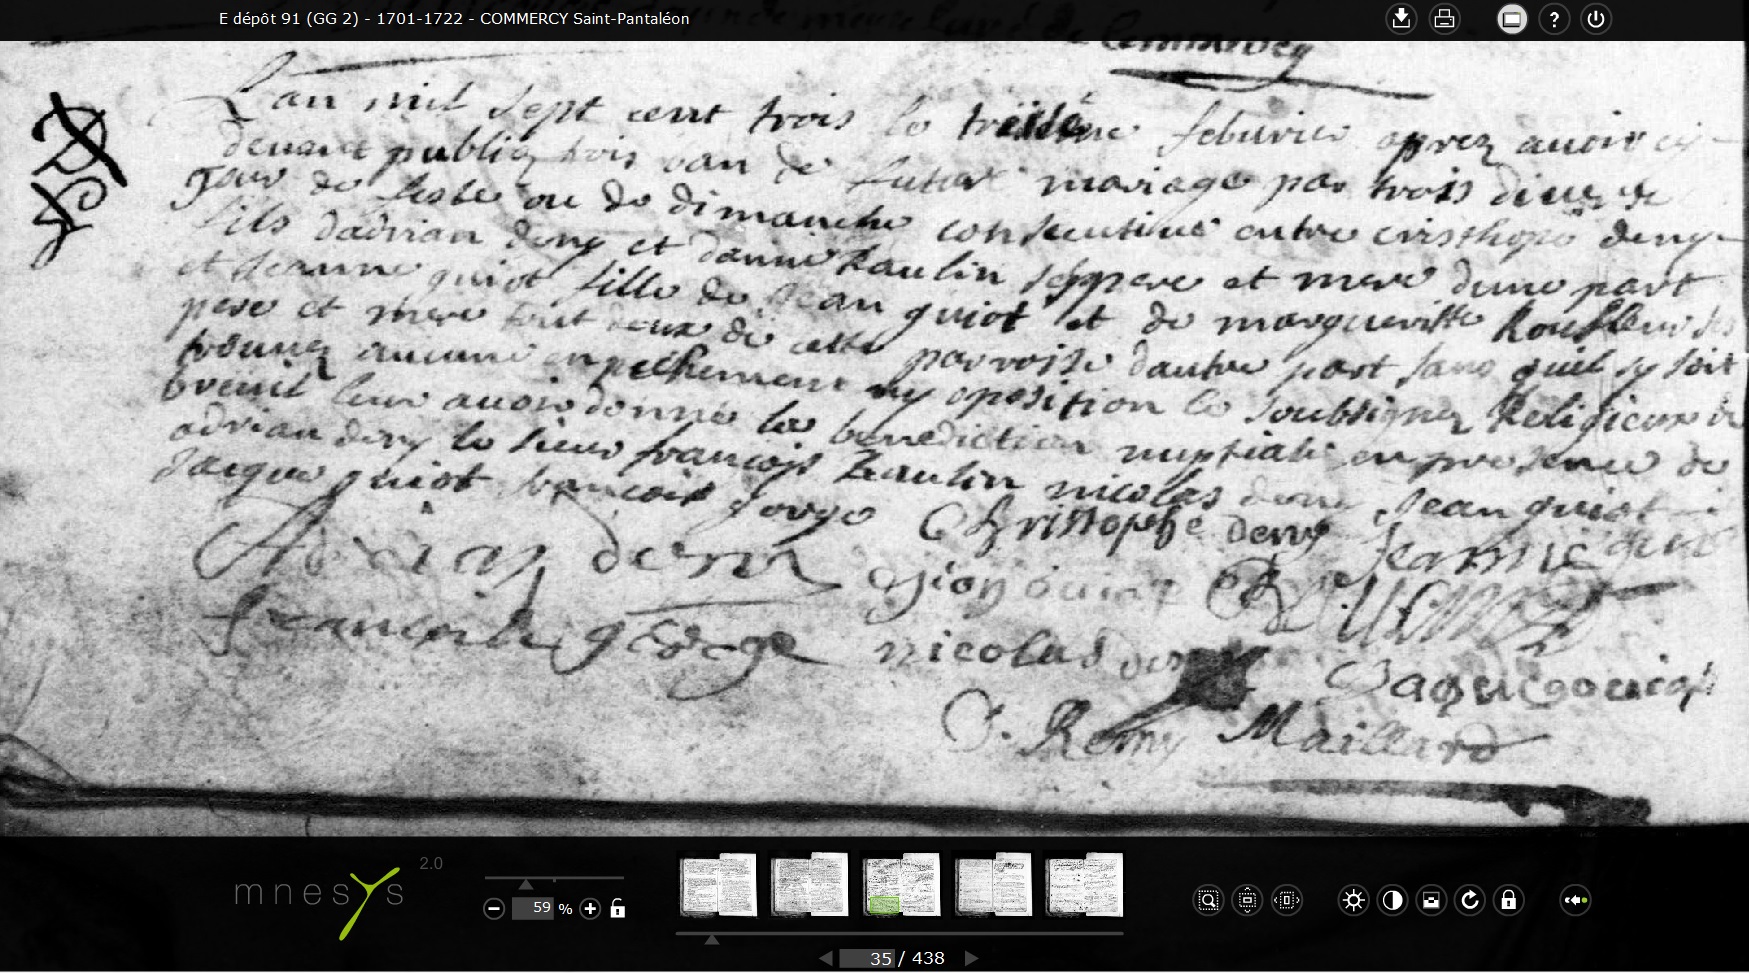 E dépôt 91 (GG 2) - 1701-1722 - COMMERCY Saint-Pantaléon
?
Commercy
Lan mil sept cent trois le febvrier aprez avoir cy
devant publiez trois ban de futur mariage par trois divers
Jour de feste ou de dimanche consecutive entre cristhope deny
fils dadrian deny et danne Raulin sep pere et mere dune part
et Jeanne quiot fille de Jean quiot et de margueritte ses
pere et mere tout deux de cette parroisse dautre part sans quil sy soit
trouvez aucune enpechement ny oposition le soubsignez Religieux de
breuil leur avoir donné la benediction nuptiale en presence de
adrian deny le sieur françois Raulin nicolas deny Jean quiot
Jacque quiot françois Christophe deny Jeanne
Adrian deny
francois george nicolas
F. Remy Maillard
mnesys 2.0
59 %
35 / 438